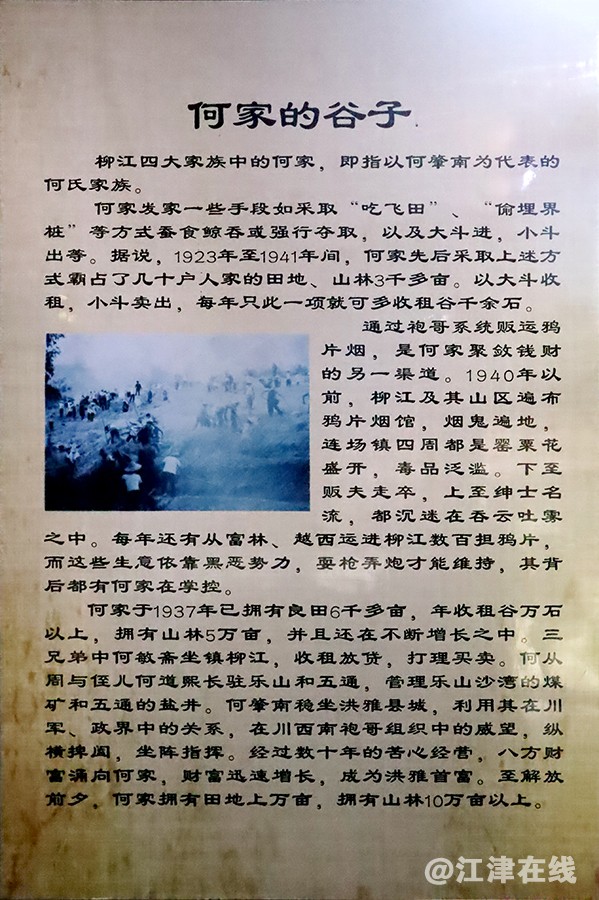 何家的谷子
柳江四大家族中的何家，即指以何肇南为代表的
何氏家族。
何家发家一些手段如采取“吃飞田”、“偷埋界
桩”等方式蚕食鲸吞或强行夺取，以及大斗进，小斗
出等。据说，1923年至1941年间，何家先后采取上述方
式霸占了几十户人家的田地、山林3千多亩。以大斗收
租，小斗卖出，每年只此一项就可多收租谷千余石。
通过袍哥系统贩运鸦
片烟，是何家聚敛钱财
的另一渠道。1940年以
前，柳江及其山区遍布
鸦片烟馆，烟鬼遍地，
连场镇四周都是罂粟花
盛开，毒品泛滥。下至
贩夫走卒，上至绅士名
流，都沉迷在吞云吐雾
之中。每年还有从富林、越西运进柳江数百担鸦片，
而这些生意依靠黑恶势力，耍枪弄炮才能维持，其背
后都有何家在掌控。
何家于1937年已拥有良田6千多亩，年收租谷万石
以上，拥有山林5万亩，并且还在不断增长之中。三
兄弟中何敏斋坐镇柳江，收租放贷，打理买卖。何从
周与侄儿何道熙长驻乐山和五通，管理乐山沙湾的煤
矿和五通的盐井。何肇南稳坐洪雅县城，利用其在川
军、政界中的关系，在川西南袍哥组织中的威望，纵
横捭阖，坐阵指挥。经过数十年的苦心经营，八方财
富涌向何家，财富迅速增长，成为洪雅首富。至解放
前夕，何家拥有田地上万亩，拥有山林10万亩以上。
@江津在线